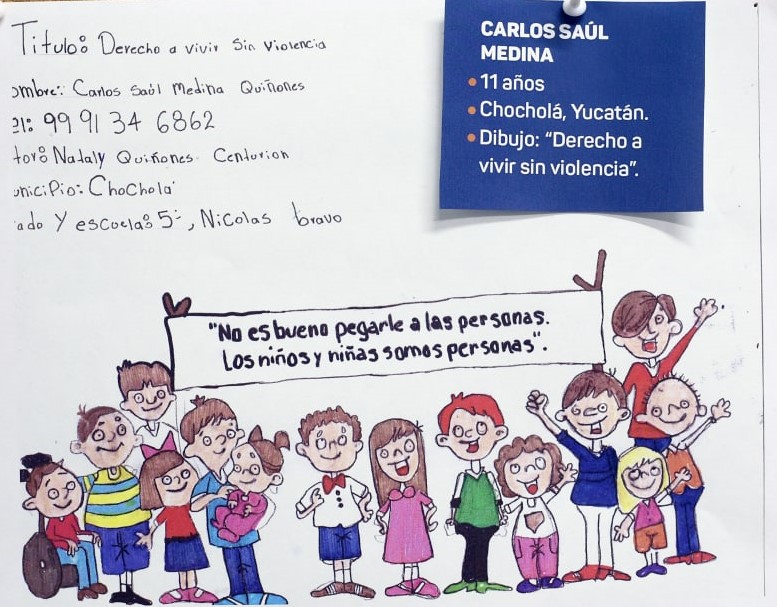 Titulo: Derecho a vivir Sin Violencia
ombre: Carlos Saúl Medina Quiñones
el: 99 91 34 6862
tor: Nataly Quiñones Centurion
unicipio: Chocholá
ado Y escuela: 5:, Nicolas bravo
CARLOS SAÚL
MEDINA
• 11 años
• Chocholá, Yucatán.
• Dibujo: “Derecho a
vivir sin violencia”.
"No es bueno pegarle a las personas.
Los niños y niñas somos personas".